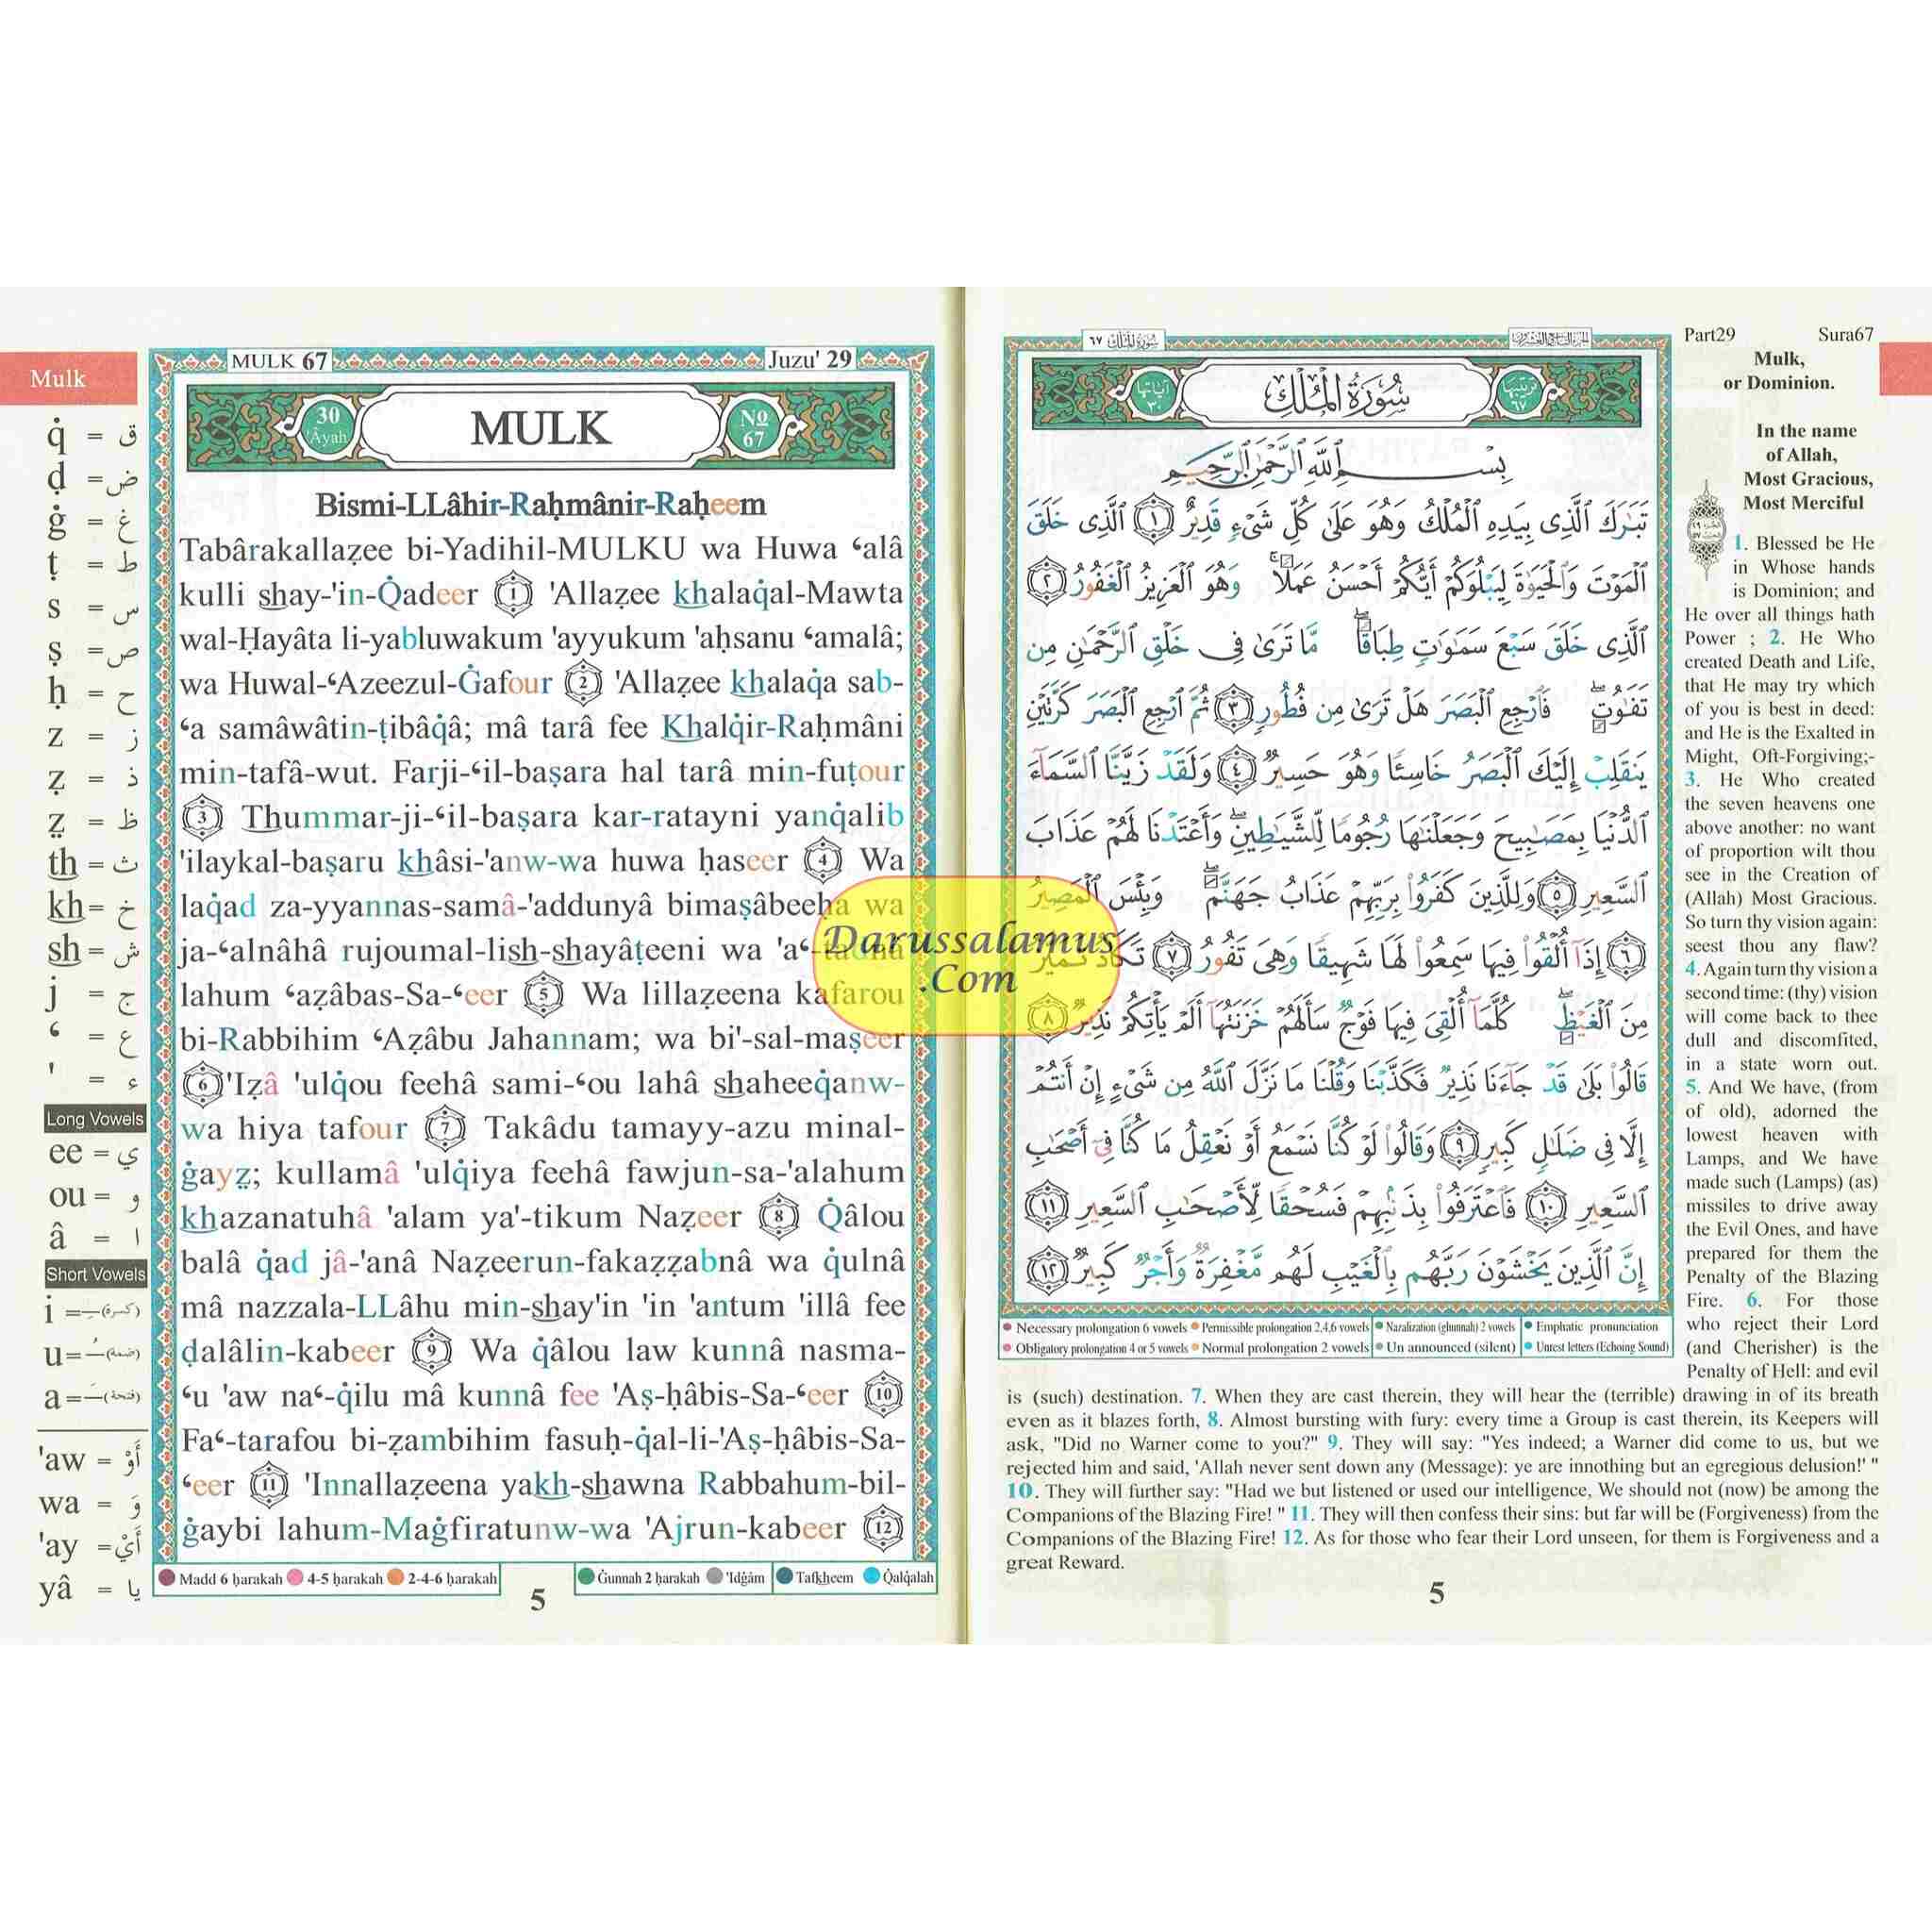 Mulk
q̇ = ق
ḍ = ض
ġ = غ
ṭ = ط
s = س
ṣ = ص
ḥ = ح
z = ز
ẓ = ذ
ẓ̤ = ظ
th = ث
kh = خ
sh = ش
j = ج
ʻ = ع
' = ء
Long Vowels
ee = ي
ou = و
â = ا
Short Vowels
i = (كسرة)
u = (ضمة)
a = (فتحة)
'aw = أَوْ
wa = وَ
'ay = أَيْ
yâ = يا
MULK 67
Juzu' 29
30
'Âyah
MULK
No
67
Bismi-LLâhir-Raḥmânir-Raḥeem
Tabârakallaẓee bi-Yadihil-MULKU wa Huwa ʻalâ
kulli shay-'in-Q̇adeer 1 'Allaẓee khalaq̇al-Mawta
wal-Ḥayâta li-yabluwakum 'ayyukum 'aḥsanu ʻamalâ;
wa Huwal-ʻAzeezul-Ġafour 2 'Allaẓee khalaq̇a sab-
ʻa samâwâtin-ṭibâq̇â; mâ tarâ fee Khalq̇ir-Raḥmâni
min-tafâ-wut. Farji-ʻil-baṣara hal tarâ min-fuṭour
3 Thummar-ji-ʻil-baṣara kar-ratayni yanq̇alib
'ilaykal-baṣaru khâsi-'anw-wa huwa ḥaseer 4 Wa
laq̇ad za-yyannas-samâ-'addunyâ bimaṣâbeeḥa wa
ja-ʻalnâhâ rujoumal-lish-shayâṭeeni wa 'aʻ-tadnâ
lahum ʻaẓâbas-Sa-ʻeer 5 Wa lillaẓeena kafarou
bi-Rabbihim ʻAẓâbu Jahannam; wa bi'-sal-maṣeer
6 'Iẓâ 'ulq̇ou feehâ sami-ʻou lahâ shaheeq̇anw-
wa hiya tafour 7 Takâdu tamayy-azu minal-
ġayẓ̤; kullamâ 'ulq̇iya feehâ fawjun-sa-'alahum
khazanatuhâ 'alam ya'-tikum Naẓeer 8 Q̇âlou
balâ q̇ad jâ-'anâ Naẓeerun-fakaẓẓabnâ wa q̇ulnâ
mâ nazzala-LLâhu min-shay'in 'in 'antum 'illâ fee
ḍalâlin-kabeer 9 Wa q̇âlou law kunnâ nasma-
ʻu 'aw naʻ-q̇ilu mâ kunnâ fee 'Aṣ-ḥâbis-Sa-ʻeer 10
Faʻ-tarafou bi-ẓambihim fasuḥ-q̇al-li-'Aṣ-ḥâbis-Sa-
ʻeer 11 'Innallaẓeena yakh-shawna Rabbahum-bil-
ġaybi lahum-Maġfiratunw-wa 'Ajrun-kabeer 12
Madd 6 ḥarakah 4-5 ḥarakah 2-4-6 ḥarakah
Ġunnah 2 ḥarakah 'Idġâm Tafkheem Q̇alq̇alah
5
Darussalamus
.Com
سُورَةُ المُلْكِ ٦٧
الجزء التاسع والعشرون
آياتها
٣٠
سُورَةُ المُلْكِ
ترتيبها
٦٧
بِسْمِ اللَّهِ الرَّحْمَٰنِ الرَّحِيمِ
تَبَٰرَكَ ٱلَّذِى بِيَدِهِ ٱلْمُلْكُ وَهُوَ عَلَىٰ كُلِّ شَىْءٍ قَدِيرٌ ١ ٱلَّذِى خَلَقَ
ٱلْمَوْتَ وَٱلْحَيَوٰةَ لِيَبْلُوَكُمْ أَيُّكُمْ أَحْسَنُ عَمَلًا ۚ وَهُوَ ٱلْعَزِيزُ ٱلْغَفُورُ ٢
ٱلَّذِى خَلَقَ سَبْعَ سَمَٰوَٰتٍ طِبَاقًا ۖ مَّا تَرَىٰ فِى خَلْقِ ٱلرَّحْمَٰنِ مِن
تَفَٰوُتٍ ۖ فَٱرْجِعِ ٱلْبَصَرَ هَلْ تَرَىٰ مِن فُطُورٍ ٣ ثُمَّ ٱرْجِعِ ٱلْبَصَرَ كَرَّتَيْنِ
يَنقَلِبْ إِلَيْكَ ٱلْبَصَرُ خَاسِئًا وَهُوَ حَسِيرٌ ٤ وَلَقَدْ زَيَّنَّا ٱلسَّمَآءَ
ٱلدُّنْيَا بِمَصَٰبِيحَ وَجَعَلْنَٰهَا رُجُومًا لِّلشَّيَٰطِينِ ۖ وَأَعْتَدْنَا لَهُمْ عَذَابَ
ٱلسَّعِيرِ ٥ وَلِلَّذِينَ كَفَرُوا۟ بِرَبِّهِمْ عَذَابُ جَهَنَّمَ ۖ وَبِئْسَ ٱلْمَصِيرُ
٦ إِذَآ أُلْقُوا۟ فِيهَا سَمِعُوا۟ لَهَا شَهِيقًا وَهِىَ تَفُورُ ٧ تَكَادُ تَمَيَّزُ
مِنَ ٱلْغَيْظِ ۖ كُلَّمَآ أُلْقِىَ فِيهَا فَوْجٌ سَأَلَهُمْ خَزَنَتُهَآ أَلَمْ يَأْتِكُمْ نَذِيرٌ ٨
قَالُوا۟ بَلَىٰ قَدْ جَآءَنَا نَذِيرٌ فَكَذَّبْنَا وَقُلْنَا مَا نَزَّلَ ٱللَّهُ مِن شَىْءٍ إِنْ أَنتُمْ
إِلَّا فِى ضَلَٰلٍ كَبِيرٍ ٩ وَقَالُوا۟ لَوْ كُنَّا نَسْمَعُ أَوْ نَعْقِلُ مَا كُنَّا فِىٓ أَصْحَٰبِ
ٱلسَّعِيرِ ١٠ فَٱعْتَرَفُوا۟ بِذَنۢبِهِمْ فَسُحْقًا لِّأَصْحَٰبِ ٱلسَّعِيرِ ١١
إِنَّ ٱلَّذِينَ يَخْشَوْنَ رَبَّهُم بِٱلْغَيْبِ لَهُم مَّغْفِرَةٌ وَأَجْرٌ كَبِيرٌ ١٢
Necessary prolongation 6 vowels Permissible prolongation 2,4,6 vowels Nazalization (ghunnah) 2 vowels Emphatic pronunciation
Obligatory prolongation 4 or 5 vowels Normal prolongation 2 vowels Un announced (silent) Unrest letters (Echoing Sound)
Part29 Sura67
Mulk,
or Dominion.
In the name
of Allah,
Most Gracious,
Most Merciful
1. Blessed be He
in Whose hands
is Dominion; and
He over all things hath
Power ; 2. He Who
created Death and Life,
that He may try which
of you is best in deed:
and He is the Exalted in
Might, Oft-Forgiving;-
3. He Who created
the seven heavens one
above another: no want
of proportion wilt thou
see in the Creation of
(Allah) Most Gracious.
So turn thy vision again:
seest thou any flaw?
4. Again turn thy vision a
second time: (thy) vision
will come back to thee
dull and discomfited,
in a state worn out.
5. And We have, (from
of old), adorned the
lowest heaven with
Lamps, and We have
made such (Lamps) (as)
missiles to drive away
the Evil Ones, and have
prepared for them the
Penalty of the Blazing
Fire. 6. For those
who reject their Lord
(and Cherisher) is the
Penalty of Hell: and evil
is (such) destination. 7. When they are cast therein, they will hear the (terrible) drawing in of its breath
even as it blazes forth, 8. Almost bursting with fury: every time a Group is cast therein, its Keepers will
ask, "Did no Warner come to you?" 9. They will say: "Yes indeed; a Warner did come to us, but we
rejected him and said, 'Allah never sent down any (Message): ye are innothing but an egregious delusion!' "
10. They will further say: "Had we but listened or used our intelligence, We should not (now) be among the
Companions of the Blazing Fire! " 11. They will then confess their sins: but far will be (Forgiveness) from the
Companions of the Blazing Fire! 12. As for those who fear their Lord unseen, for them is Forgiveness and a
great Reward.
5